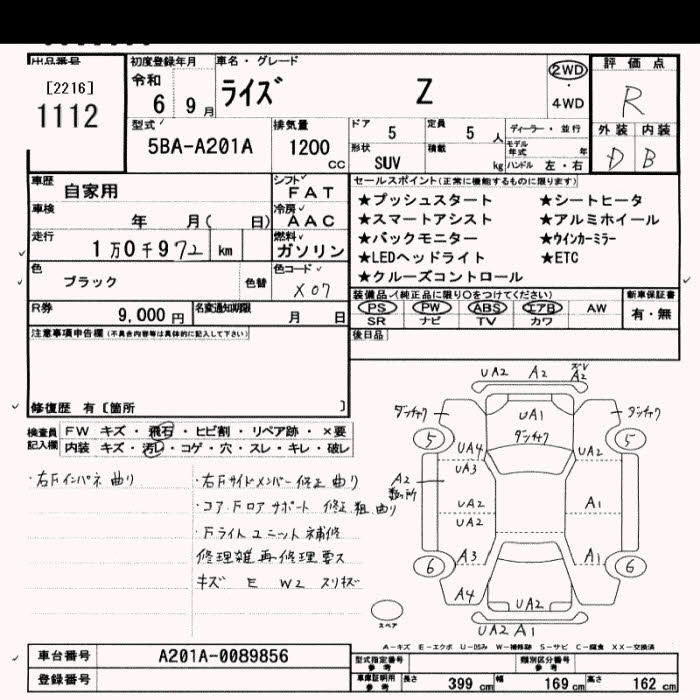 出品番号
[2216]
1112
初度登録年月
令和
6 9月
車名・グレード
ライズ Z
2WD
・
4WD
評価点
R
外装 内装
D B
型式
5BA-A201A
排気量
1200
cc
ドア
5
定員
5 人
形状
SUV
積載
kg
ディーラー・並行
モデル年式 年
ハンドル 左・右
車歴
自家用
シフト
FAT
車検
年 月( 日)
冷房
AAC
走行
1万0千972 km
燃料
ガソリン
色
ブラック
色替
色コード
X07
R券
9,000 円
名変通知期限
月 日
セールスポイント(正常に機能するものに限ります)
★プッシュスタート ★シートヒータ
★スマートアシスト ★アルミホイール
★バックモニター ★ウインカーミラー
★LEDヘッドライト ★ETC
★クルーズコントロール
装備品(純正品に限り○をつけてください)
PS PW ABS エアB AW
SR ナビ TV カワ
新車保証書
有・無
後日品
注意事項申告欄(不具合内容等は具体的に記入して下さい)
修復歴 有〔箇所 〕
検査員
記入欄
FW キズ・飛石・ヒビ割・リペア跡・×要
内装 キズ・汚レ・コゲ・穴・スレ・キレ・破レ
・右Fインパネ曲り
・右Fサイドメンバー修正曲り
・コア.Fロアサポート修正粗曲り
・Fライトユニット補修
修理雑再修理要ス
キズ E W2 スリキズ
UA2 A2 ズレ A2
ダンチャク ダンチャク
UA1
ダンチャク
5 5
UA4 UA2
UA3
A2
数ヶ所
UA2 A1
UA2
A3 A1
6 6
A4
UA2
UA2 A1
スペア
A-キズ E-エクボ U-凹み W-補修跡 S-サビ C-腐食 XX-交換済
車台番号
A201A-0089856
登録番号
型式指定番号
参考
類別区分番号
参考
車庫証明用
参考
長さ 399 cm 幅 169 cm 高さ 162 cm